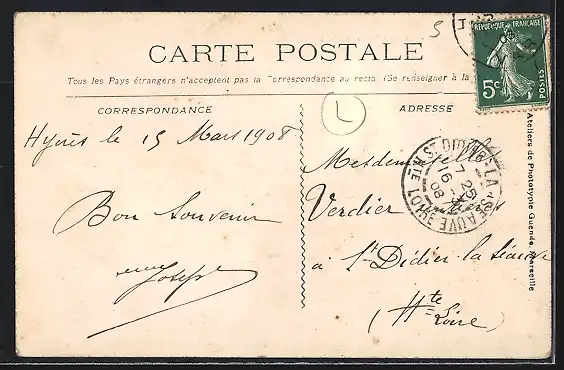 5
REPUBLIQUE FRANÇAISE
5c
POSTES
CARTE POSTALE
Tous les Pays étrangers n'acceptent pas la Correspondance au recto (Se renseigner à la
CORRESPONDANCE
ADRESSE
L
Hyères le 15 Mars 1908
Bon Souvenir
Joseph
Mesdemoiselles
Verdier
à St Didier la Séauve
(Hte
Loire)
ST DIDIER-LA-SEAUVE
HTE LOIRE
7 25
16 - 3
08
Ateliers de Phototypie Guende, Marseille